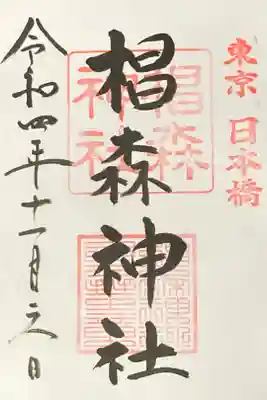 東京 日本橋
椙森神社
椙森
神社
令和四年十一月之日